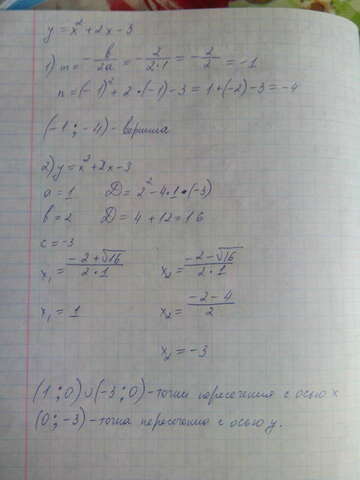 y = x² + 2x - 3
1) m = -b/2a = -2/2·1 = -2/2 = -1
n = (-1)² + 2·(-1) - 3 = 1 + (-2) - 3 = -4
(-1; -4) - вершина
2) y = x² + 2x - 3
a = 1 D = 2² - 4·1·(-3)
b = 2 D = 4 + 12 = 16
c = -3
x₁ = -2+√16/2·1 x₂ = -2-√16/2·1
x₁ = 1 x₂ = -2-4/2
x₂ = -3
(1; 0) и (-3; 0) - точки пересечения с осью x
(0; -3) - точка пересечения с осью y.